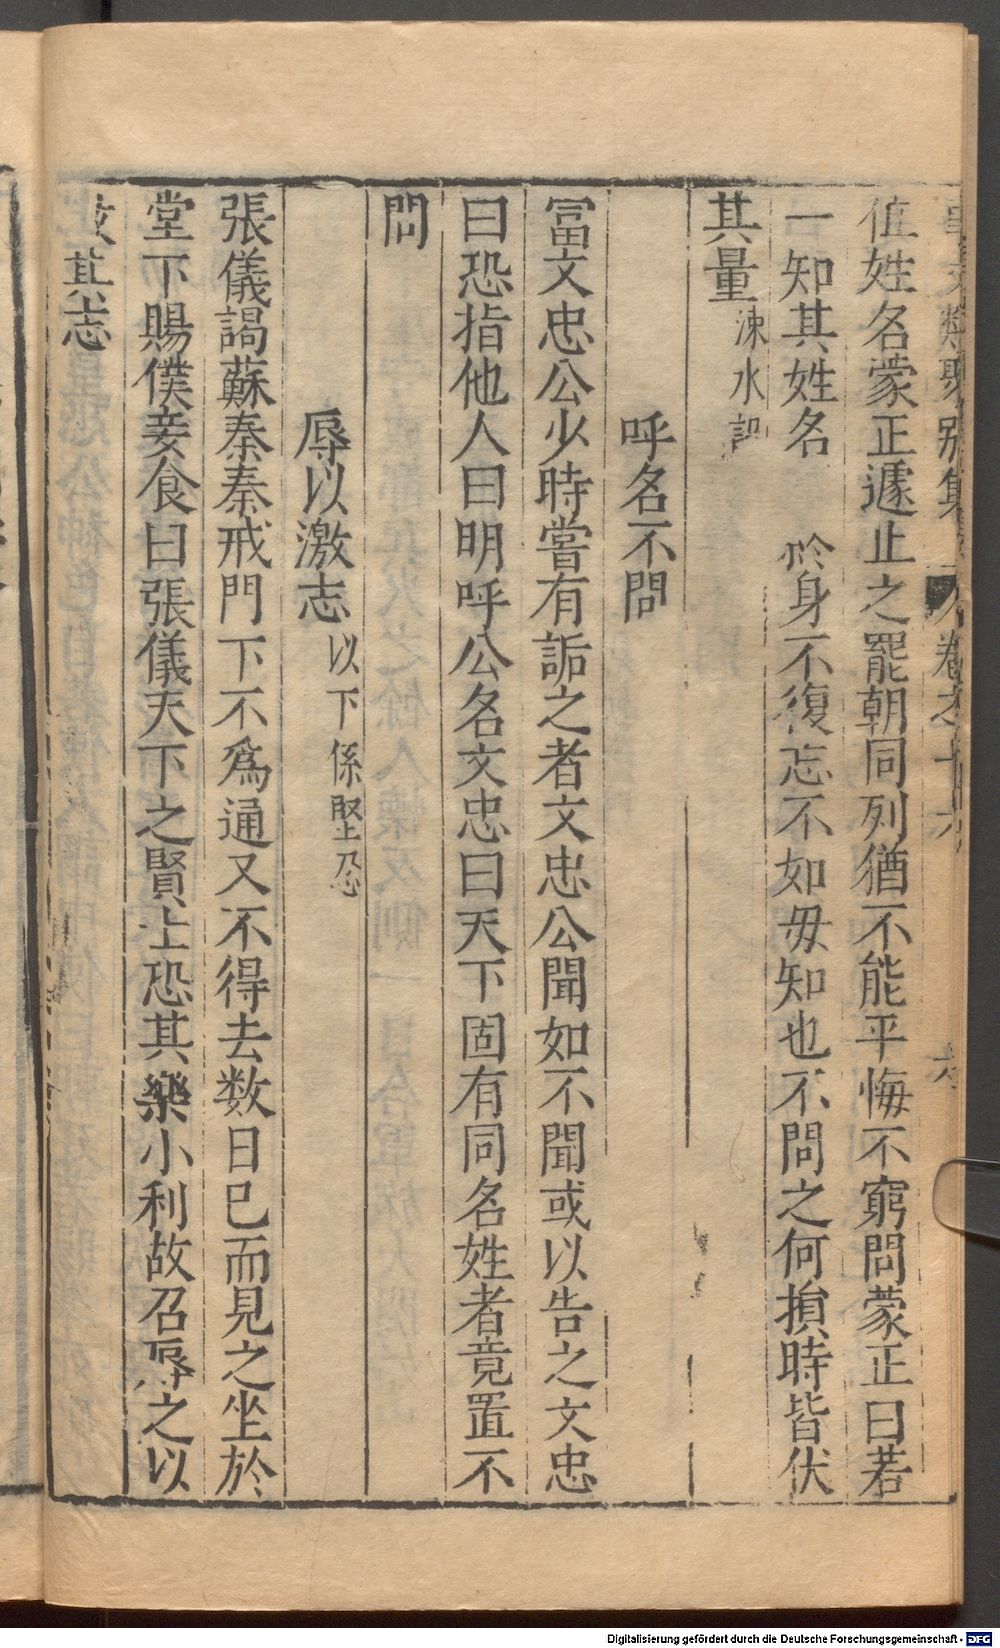 事文類聚別集 卷之十八 六
值姓名蒙正遽止之罷朝同列猶不能平悔不窮問蒙正曰若
一知其姓名 於身不復忘不如毋知也不問之何損時皆伏
其量涑水記
呼名不問
冨文忠公少時嘗有詬之者文忠公聞如不聞或以告之文忠
曰恐指他人曰明呼公名文忠曰天下固有同名姓者竟置不
問
辱以激志以下係堅忍
張儀謁蘇秦秦戒門下不為通又不得去数日已而見之坐於
堂下賜僕妾食曰張儀天下之賢士恐其樂小利故召辱之以
激其志
Digitalisierung gefördert durch die Deutsche Forschungsgemeinschaft - DFG